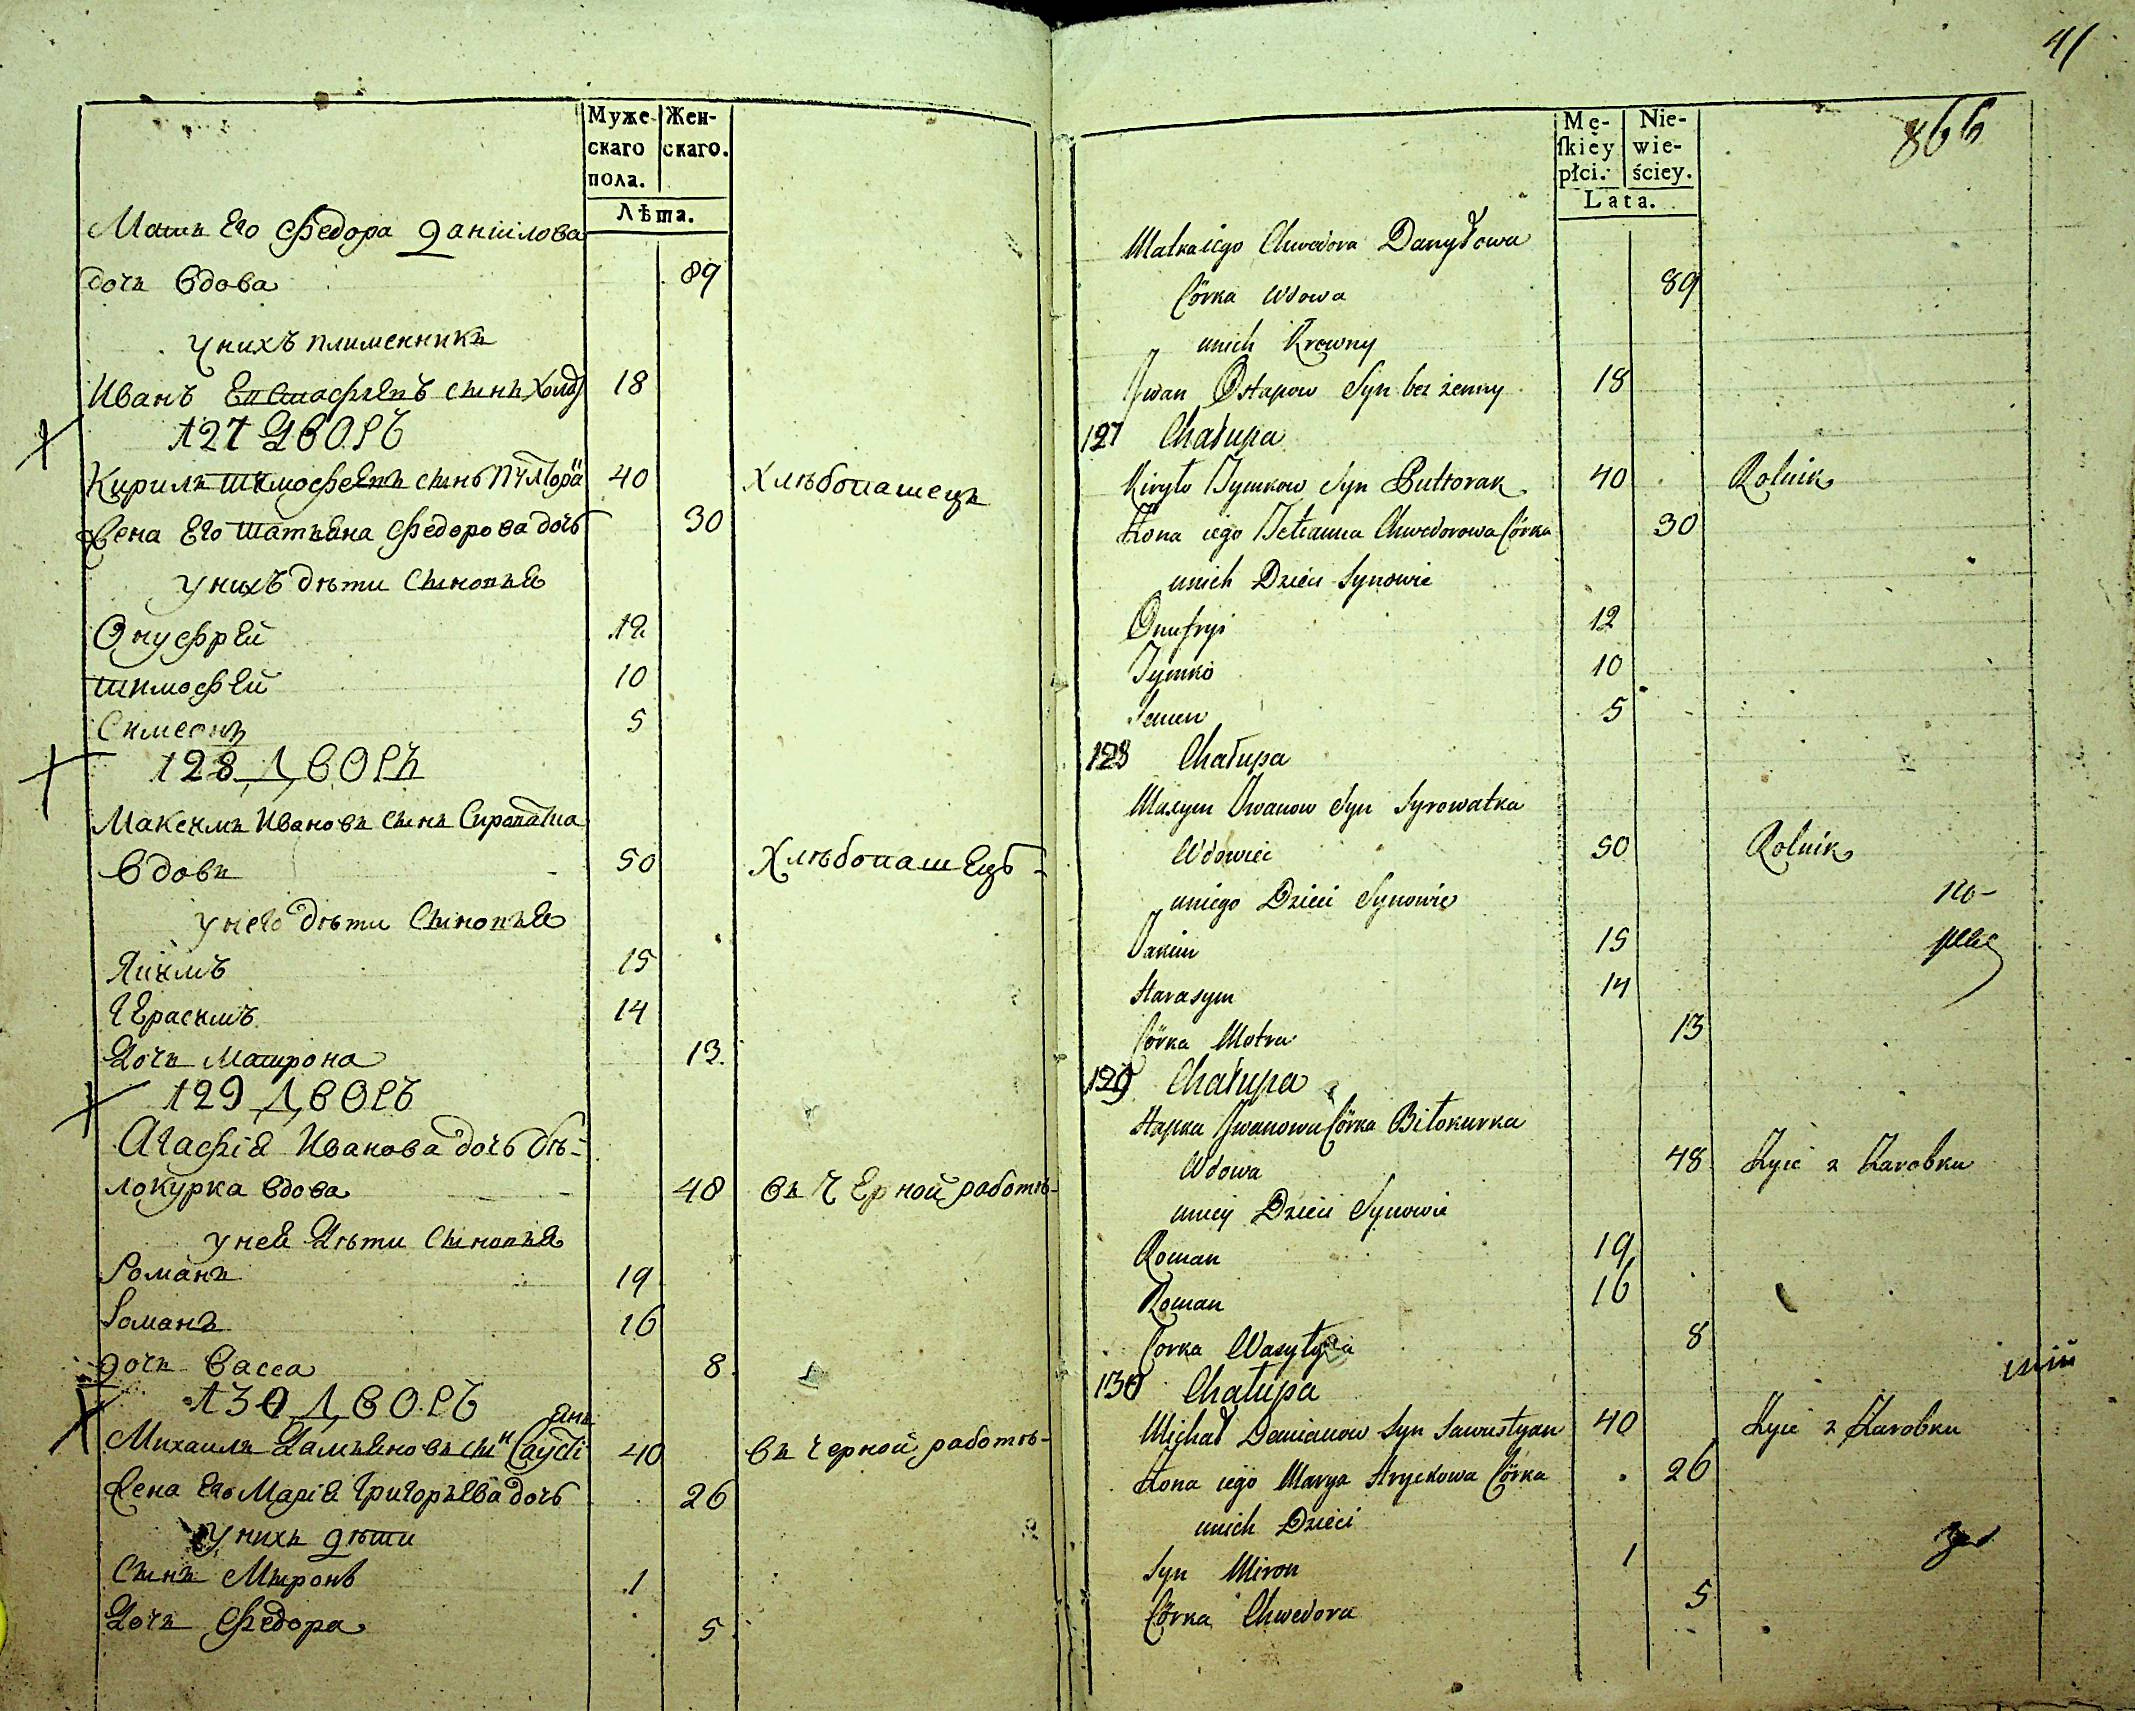 Муже-
скаго
пола.
Жен-
скаго.
Лѣта.
Мать Его Федора Даніилова
дочь вдова 89
У нихъ плименникъ
Иванъ Евстафіевъ сынъ холос 18
127 ДВОРЪ
Кирилъ Тимофеевъ сынъ Пултора 40 Хлѣбопашецъ
Жена Его Татьяна Федорова дочь 30
У нихъ дѣти сыновья
Онуфрей 12
Тимофей 10
Симеонъ 5
128 ДВОРЪ
Максимъ Ивановъ сынъ Сироватка
вдовъ 50 Хлѣбопашецъ
У него дѣти сыновья
Якимъ 15
Герасимъ 14
Дочь Матрона 13
129 ДВОРЪ
Агафія Иванова дочь бѣ-
локурка вдова 48 въ черной работѣ
У ней дѣти сыновья
Романъ 19
Романъ 16
дочь Васса 8
130 ДВОРЪ
янъ
Михаилъ Дамьяновъ сын Саусті 40 въ черной работѣ
Жена его Марія Григорьева дочь 26
У нихъ дѣти
Сынъ Миронъ 1
Дочь Федора 5
41
866
Mę-
ſkiey
płci.
Nie-
wie-
ściey.
Lata.
Matka iego Chwedora Danyłowa
Córka Wdowa 89
unich Krewny
Iwan Ostapow Syn bez żenny 18
127 Chałupa
Kiryło Tymkow Syn Pułtorak 40 Rolnik
Żona iego Tetianna Chwedorowa Córka 30
unich Dzieci Synowie
Onufryi 12
Tymko 10
Semen 5
128 Chałupa
Maxym Iwanow Syn Syrowatka
Wdowiec 50 Rolnik
uniego Dzieci Synowie
Iakim 15
Harasym 14
Córka Motra 13
129 Chałupa
Hapka Iwanowa Córka Biłokurka
Wdowa 48 Żyie z Zarobku
uniey Dzieci Synowie
Roman 19
Roman 16
Corka Wasyłyna 8
130 Chałupa
Michał Demianow Syn Sawustyan 40 Żyie z Zarobku
Żona iego Marya Hryckowa Córka 26
unich Dzieci
Syn Miron 1
Córka Chwedora 5